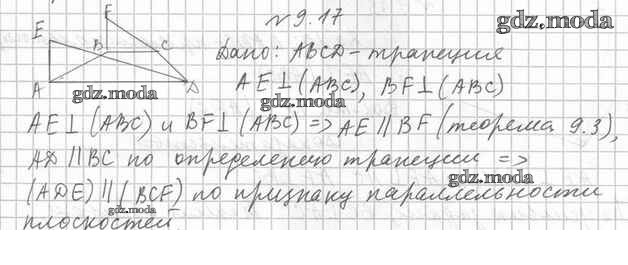 № 9.17
gdz.moda
F
E
B
C
A
D
Дано: ABCD - трапеция
AE⊥(ABC), BF⊥(ABC)
gdz.moda
gdz.moda
AE⊥(ABC) и BF⊥(ABC) => AE∥BF (теорема 9.3),
AD∥BC по определению трапеции =>
gdz.moda
(ADE)∥(BCF) по признаку параллельности
gdz.moda
плоскостей